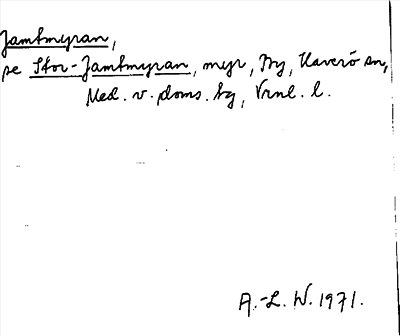 Jamtmyran,
se Stor-Jamtmyran, myr, By, Haverö sn,
Med. v. doms. bg, Vrnl. l.
A.-L. W. 1971.